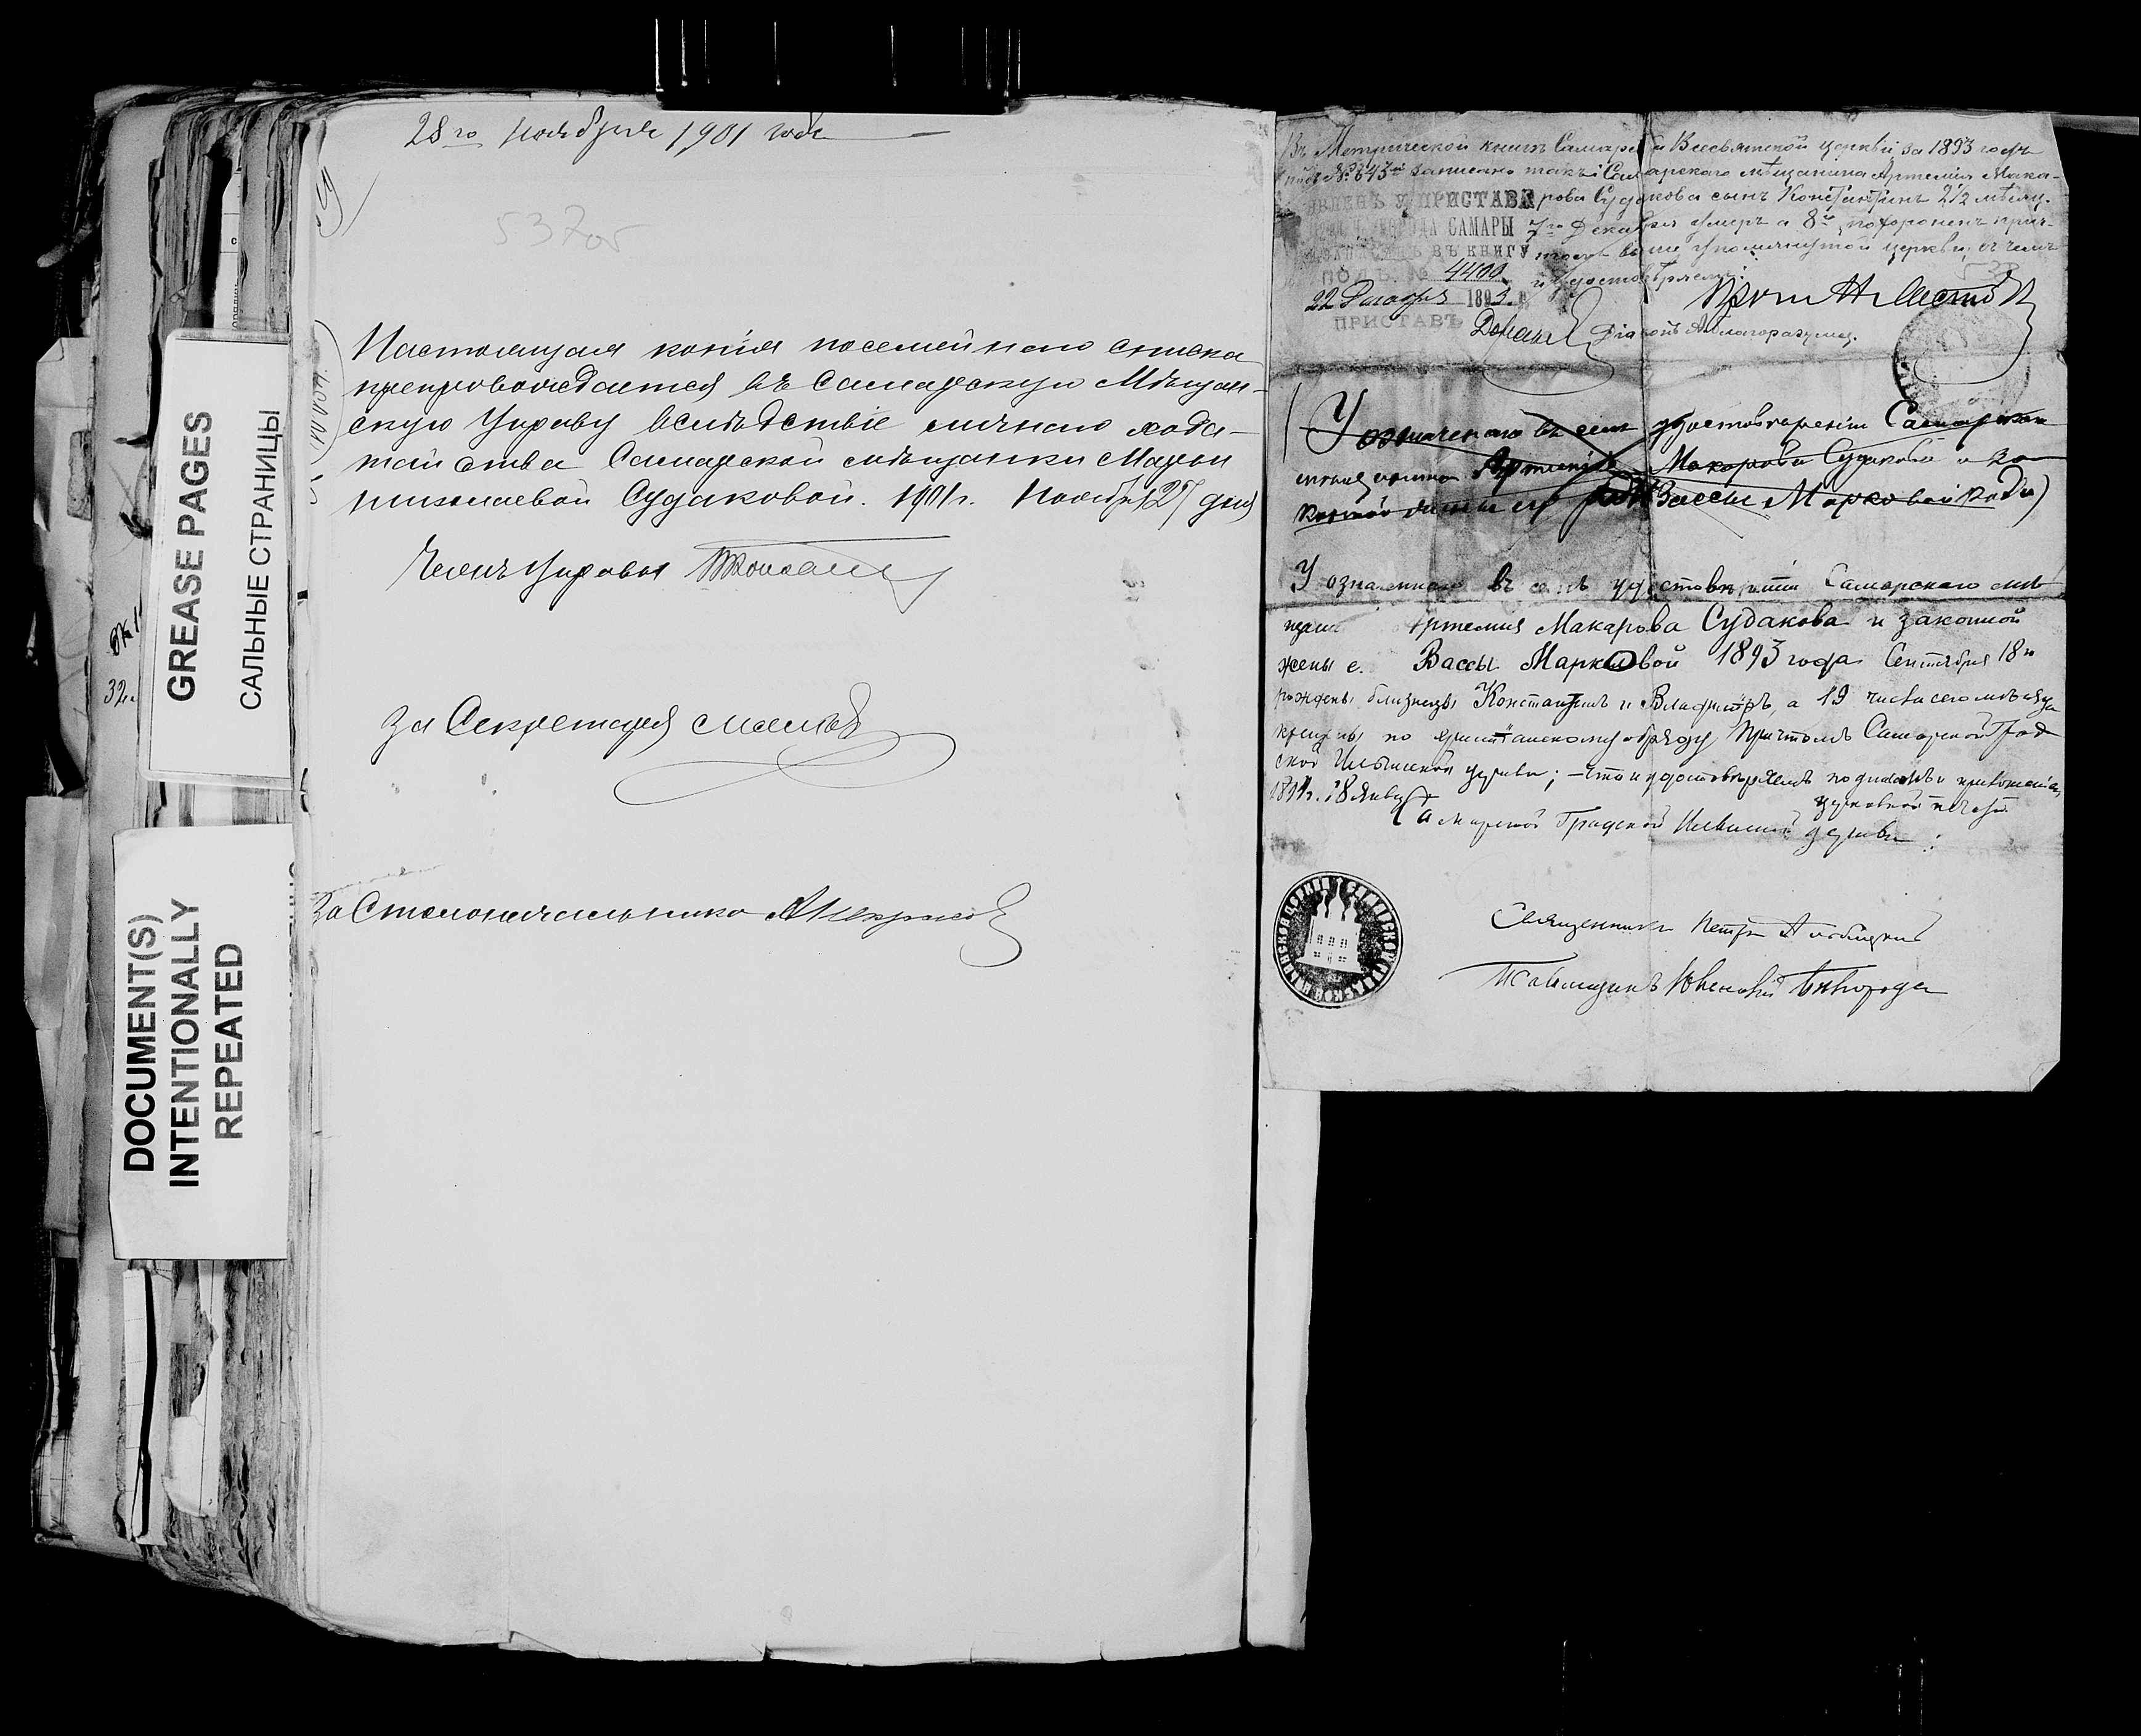 28го ноября 1901 года
537об
Настоящая копія посемейнаго списка
препровождается въ Самарскую Мѣщан-
скую Управу вслѣдствіе личнаго хода-
тайства Самарской мѣщанки Марьи
Николаевой Судаковой. 1901 г. Ноября 27 дня
Членъ Управы
За Секретаря
За Столоначальника
GREASE PAGES
САЛЬНЫЕ СТРАНИЦЫ
DOCUMENT(S)
INTENTIONALLY
REPEATED
Въ Метрической книгѣ Самарской Всесвятской церкви за 1893 годъ
подъ № 643 записано такъ: Самарскаго мѣщанина Артемія Мака-
рова Судакова сынъ Константинъ 2½ мѣсяц.
7го Декабря умеръ а 8го похороненъ прич-
томъ выше упомянутой церкви, въ чемъ
и удостовѣряемъ.
ЯВЛЕНЪ У ПРИСТАВА
ГОРОДА САМАРЫ
ВЪ КНИГУ
ПОДЪ № 4400
22 Декабря 1893 г.
ПРИСТАВЪ
538
Діаконъ А. Благоразумов.
У означеннаго въ семъ удостовѣреніи Самарскаго
мѣщанина Артемія Макарова Судакова и за-
конной жены его Вассы Марковой роди)
У означеннаго въ семъ удостовѣреніи Самарскаго мѣ-
щани Артемія Макарова Судакова и законной
жены е. Вассы Марковой 1893 года Сентября 18го
рождены близнецы Константинъ и Владиміръ, а 19 числа сего мѣсяца
крещены по христіанскому обряду Причтомъ Самарской Град-
ской Ильинской церкви; – что и удостовѣряемъ подписью и приложеніемъ
церковной печати.
1894 г. 18 Янв.
Самарской Градской Ильинской церкви:
Священникъ Петръ
Псаломщикъ